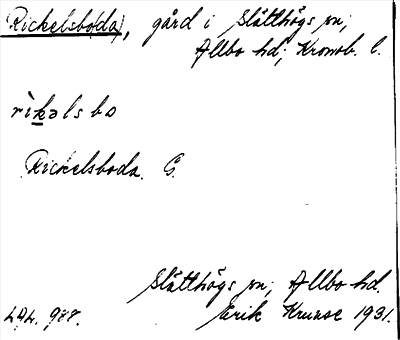 Rickelsbo(da), gård i Slätthögs sn;
Allbo hd; Kronob. l.
rìkəls bo
Rickelsboda. G.
Slätthögs sn; Allbo hd.
Erik Kruuse 1931.